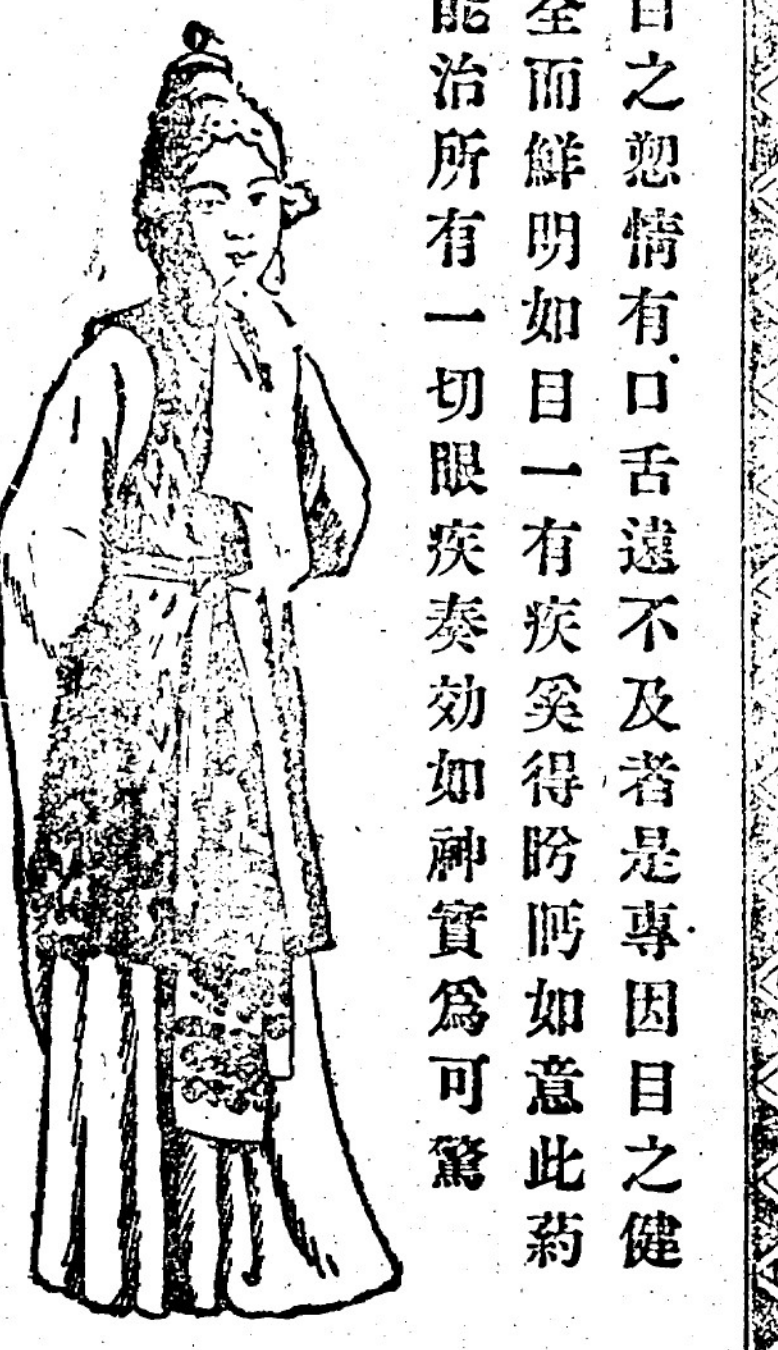 目之愬情有口舌遠不及者是專因目之健
全而鮮明如目一有疾奚得盻眄如意此葯
能治所有一切眼疾奏効如神實爲可驚